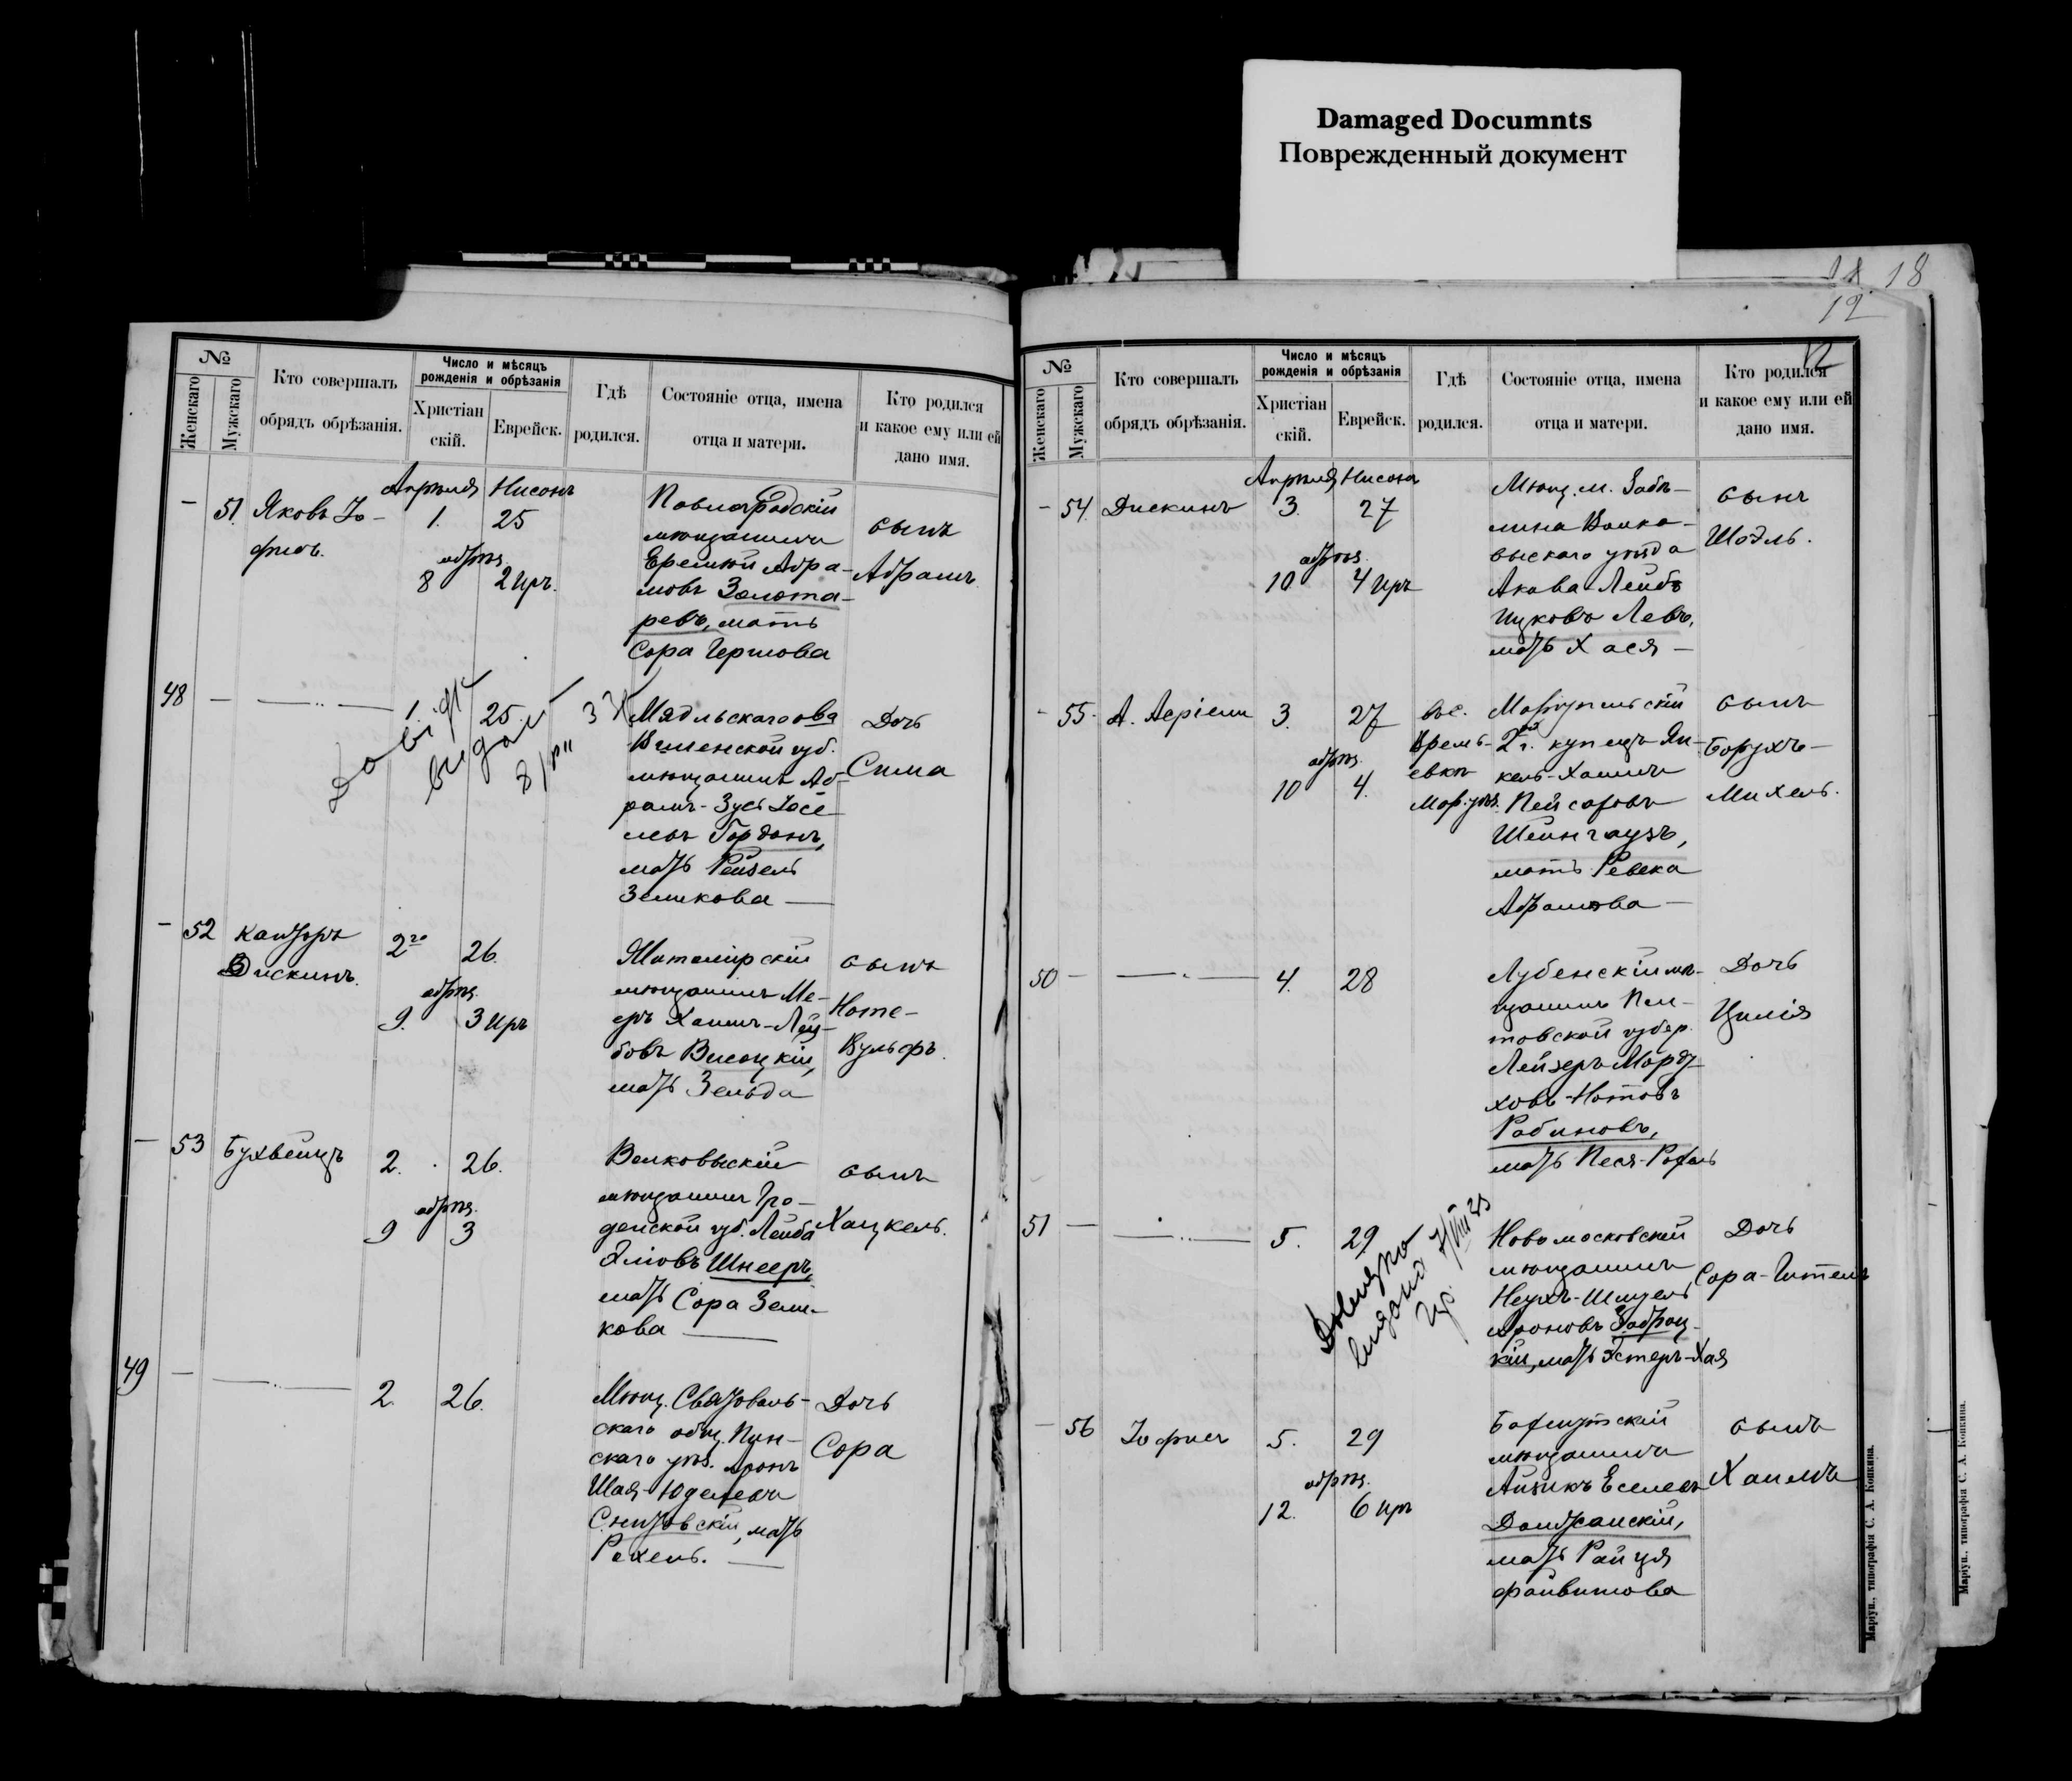 Damaged Documnts
Поврежденный документ
18
12
№
Женскаго
Мужскаго
Кто совершалъ
обрядъ обрѣзанія.
Число и мѣсяцъ
рожденія и обрѣзанія
Христіан
скій.
Еврейск.
Гдѣ
родился.
Состояніе отца, имена
отца и матери.
Кто родился
и какое ему или ей
дано имя.
Апрѣля Нисонъ
— 51. Яковъ Іо-
фисъ.
1. 25
обрѣз.
8 2 Иръ.
Павлоградскій
мѣщанинъ
Еремій Абра-
мовъ Золота-
ревъ, мать
Сора Гершова
сынъ
Абрамъ.
48 — —
1. 25.
Довідк
видані
Мядльскаго ова
Виленской губ.
мѣщанинъ Аб-
рамъ-Зусь Іосе-
левъ Гордонъ,
мать Рейзель
Зеликова —
Дочь
Сима
— 52 Канторъ
Дискинъ.
2го 26.
обрѣз.
9. 3 Иръ
Житомірскій
мѣщанинъ Ме-
еръ Хаимъ-Лей-
бовъ Высоцкій,
мать Зельда
сынъ
Ноте-
Вульфъ.
— 53 Бухвейцъ
2. 26.
обрѣз.
9 3
Волковыскій
мѣщанинъ Гро-
дненской губ. Лейба
Эліовъ Шнееръ,
мать Сора Зели-
кова —
сынъ
Хацкель.
49 — —
2. 26.
Мѣщ. Святоволь-
скаго общ. Пин-
скаго уѣз. Аронъ
Шая-Юделевъ
Снитовскій, мать
Рахель. —
Дочь
Сора
12
№
Женскаго
Мужскаго
Кто совершалъ
обрядъ обрѣзанія.
Число и мѣсяцъ
рожденія и обрѣзанія
Христіан
скій.
Еврейск.
Гдѣ
родился.
Состояніе отца, имена
отца и матери.
Кто родился
и какое ему или ей
дано имя.
Апрѣля Нисона
— 54. Дискинъ
3. 27
обрѣз.
10 4 Иръ
Мѣщ. м. Заблу-
Волко-
выскаго уѣзда
Акива-Лейбъ
Ицковъ Левъ,
мать Хася —
сынъ
Шоэль.
— 55. А. Асріели
3. 27
обрѣз.
10 4.
Маріупольскій
2й г. купецъ Ян-
кель-Хаимъ
Пейсаховъ
Штейнгаузъ,
мать Ревека
Абрамова —
сынъ
Борухъ-
Михель.
50 — —
4. 28
Лубенскій мѣ-
щанинъ Пол-
тавской губер.
Лейзеръ Морду-
ховъ-Нотовъ
Рабиновъ,
мать Песя-Рохль
Дочь
Цилія
51 — —
5. 29
Довідку
видано
Новомосковскій
мѣщанинъ
Ароновъ
мать Эстеръ-Хая
Дочь
Сора-Гитель
— 56 Іофисъ
5. 29
обрѣз.
12. 6 Иръ
Бахмутскій
мѣщанинъ
Айзикъ Еселевъ
мать Райця
Файвишова
сынъ
Хаимъ
Маріуп., типографія С. А. Копкина.
Маріуп., типографія С. А. Копкина.